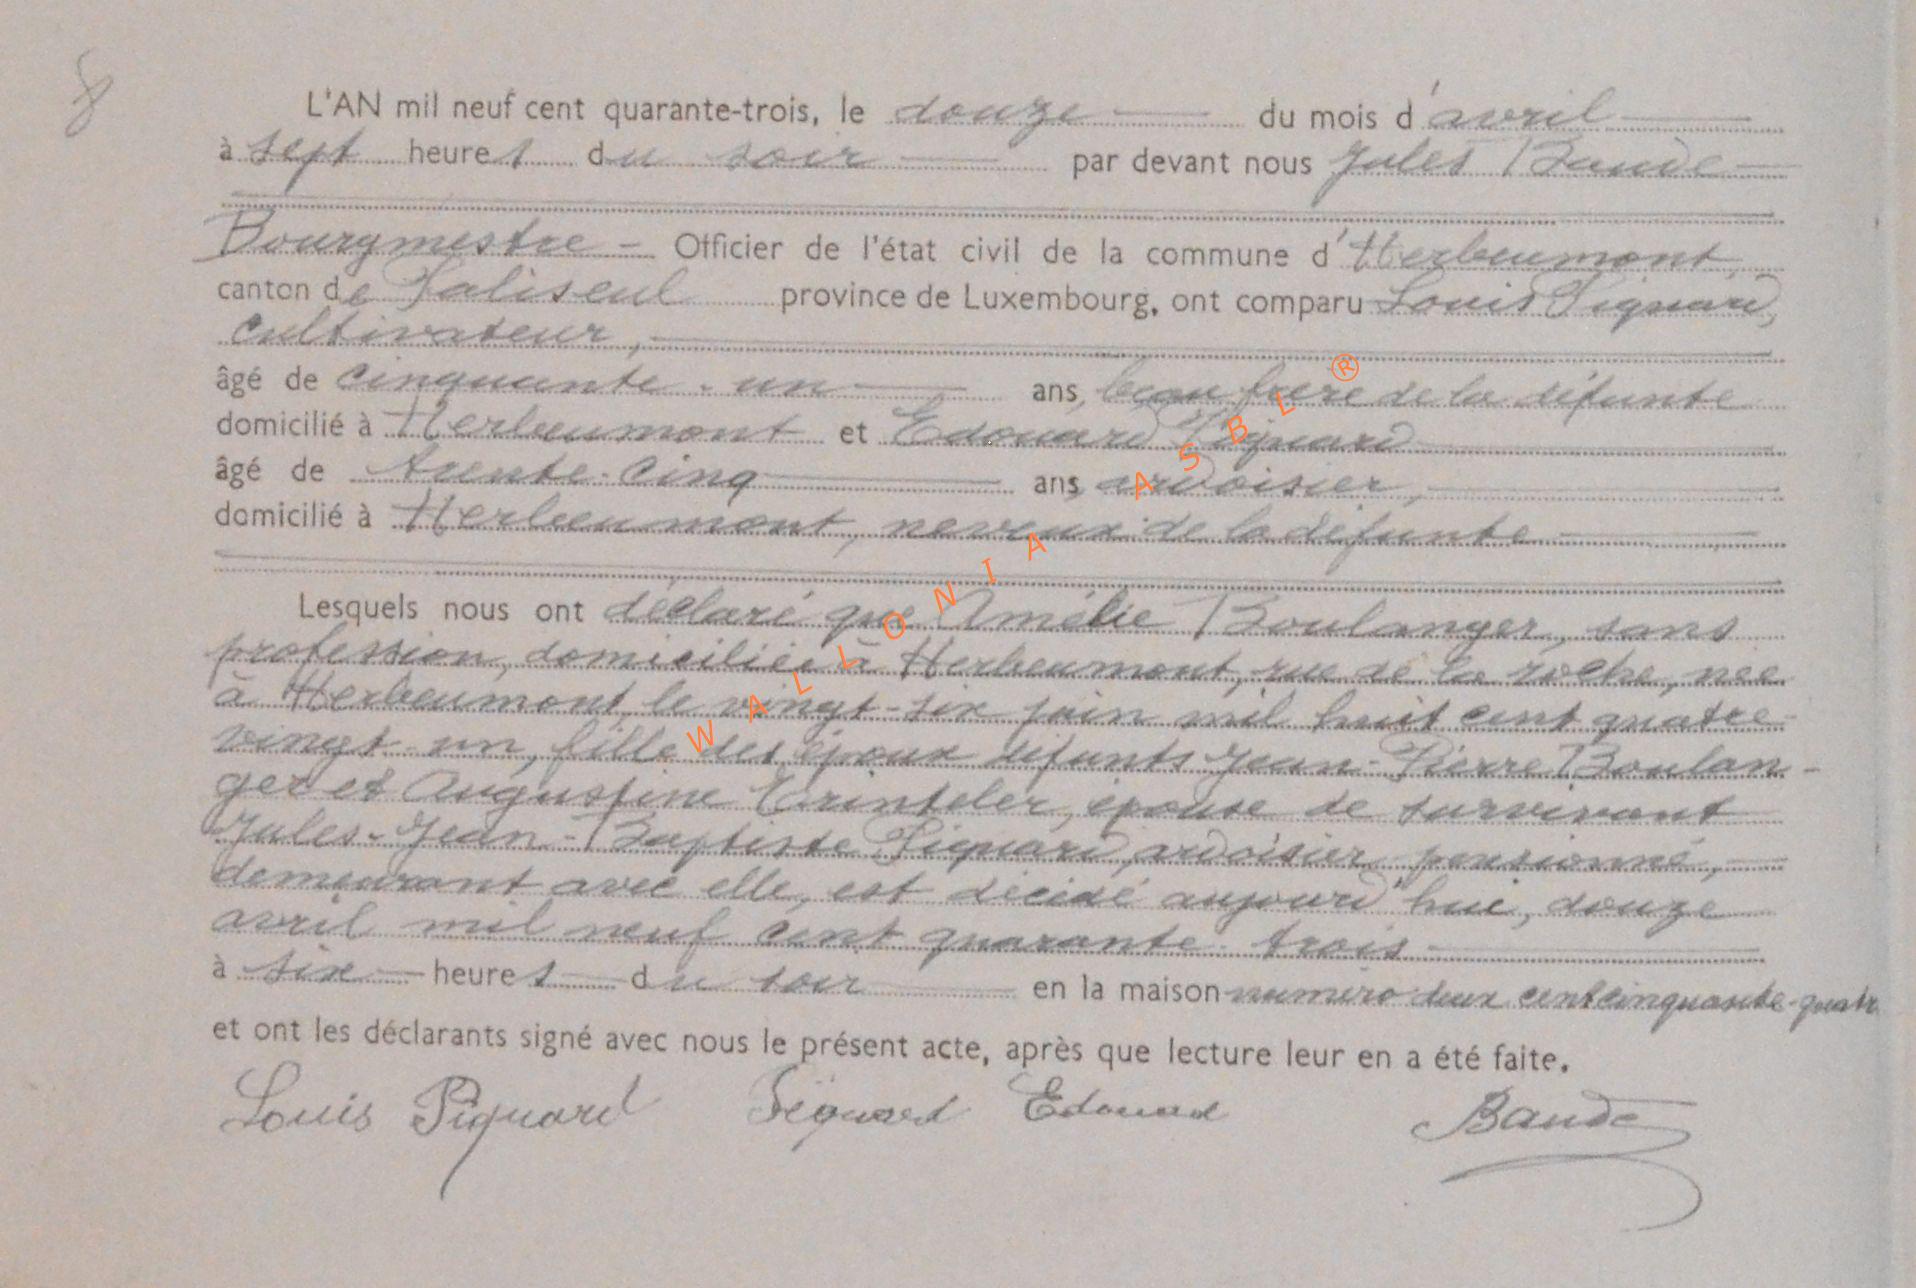 8
L'AN mil neuf cent quarante-trois, le douze du mois d'avril
à sept heures du soir par devant nous Jules Baude
Bourgmestre - Officier de l'état civil de la commune d'Herbeumont,
canton de Paliseul province de Luxembourg, ont comparu Louis Piquard,
cultivateur,
âgé de cinquante-un ans, beau frère de la défunte
domicilié à Herbeumont et Edouard Piquard
âgé de trente-cinq ans, ardoisier,
domicilié à Herbeumont, neveux de la défunte
Lesquels nous ont déclaré que Amélie Boulanger, sans
profession, domiciliée à Herbeumont, rue de la roche, née
à Herbeumont, le vingt-six juin mil huit cent quatre-
vingt-un, fille des époux défunts Jean-Pierre Boulan-
ger et Augustine Trinteler, épouse de survivant
Jules-Jean-Baptiste Piquard, ardoisier pensionné,
demeurant avec elle, est décédé aujourd'hui, douze
avril mil neuf cent quarante-trois
à six heures du soir en la maison numéro deux cent cinquante-quatre
et ont les déclarants signé avec nous le présent acte, après que lecture leur en a été faite.
Louis Piquard Piquard Edouard Baude
WALLONIA ASBL ®